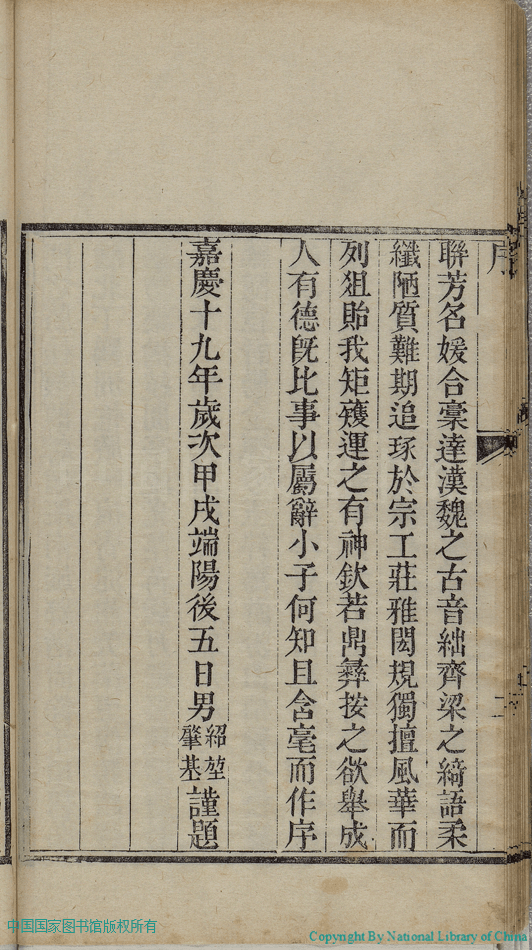 序
聯芳名媛合稾達漢魏之古音絀齊梁之綺語柔
纖陋質難期追琢於宗工莊雅閎規獨擅風華而
列俎貽我矩矱運之有神欽若鼎彝按之欲舉成
人有德旣比事以屬辭小子何知且含毫而作序
嘉慶十九年歲次甲戌端陽後五日男紹堃肇基謹題
二
中国国家图书馆版权所有
Copyright By National Library of China